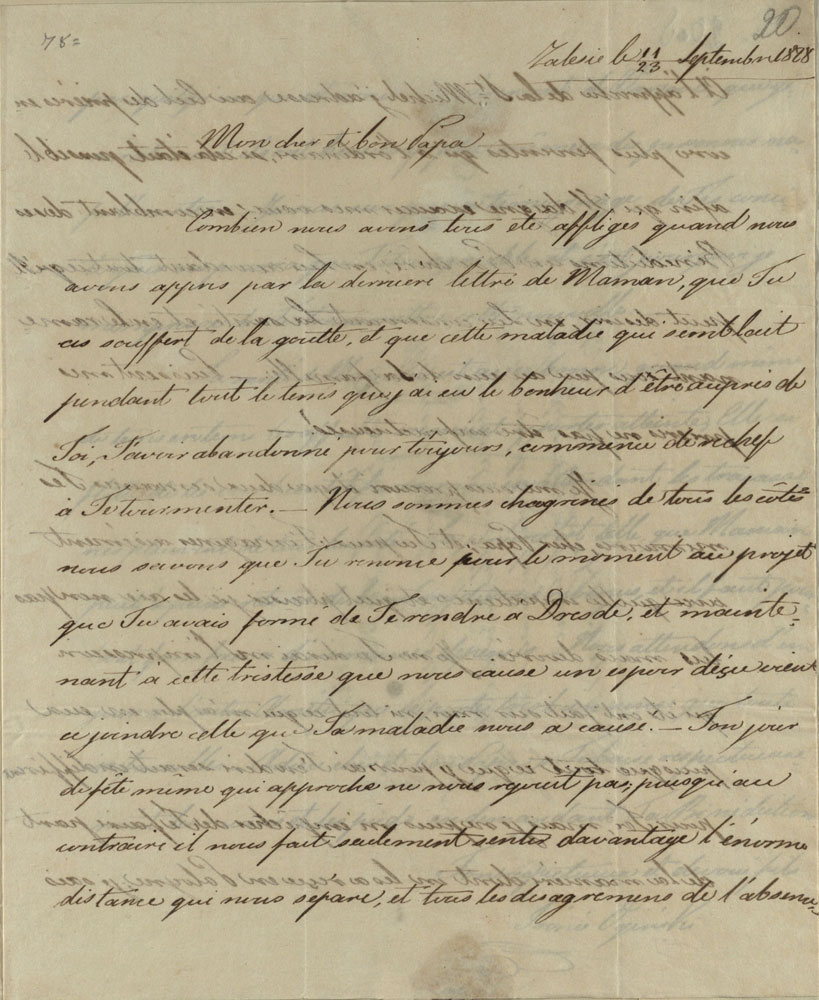 78=
20.
Zalesie le 11/23 Septembre 1828
Mon cher et bon Papa
Combien nous avons tous eté affligés quand nous
avons appris par la derniere lettre de Maman, que Tu
as souffert de la goutte, et que cette maladie qui semblait
pendant tout le tems que j'ai eu le bonheur d'être auprès de
Toi, T'avoir abandonné pour toujours, commence derechef
à Te tourmenter. — Nous sommes chagrinés de tous les côtés
nous savons que Tu renonce pour le moment au projet
que Tu avais formé de Te rendre à Dresde, et mainte=
nant à cette tristesse que nous cause un espoir déçu vient
se joindre celle que Ta maladie nous a causé. — Ton jour
de fête même qui approche ne nous rejouit pas, puisqu'au
contraire il nous fait seulement sentir davantage l'énorme
distance qui nous separe, et tous les desagremens de l'absence